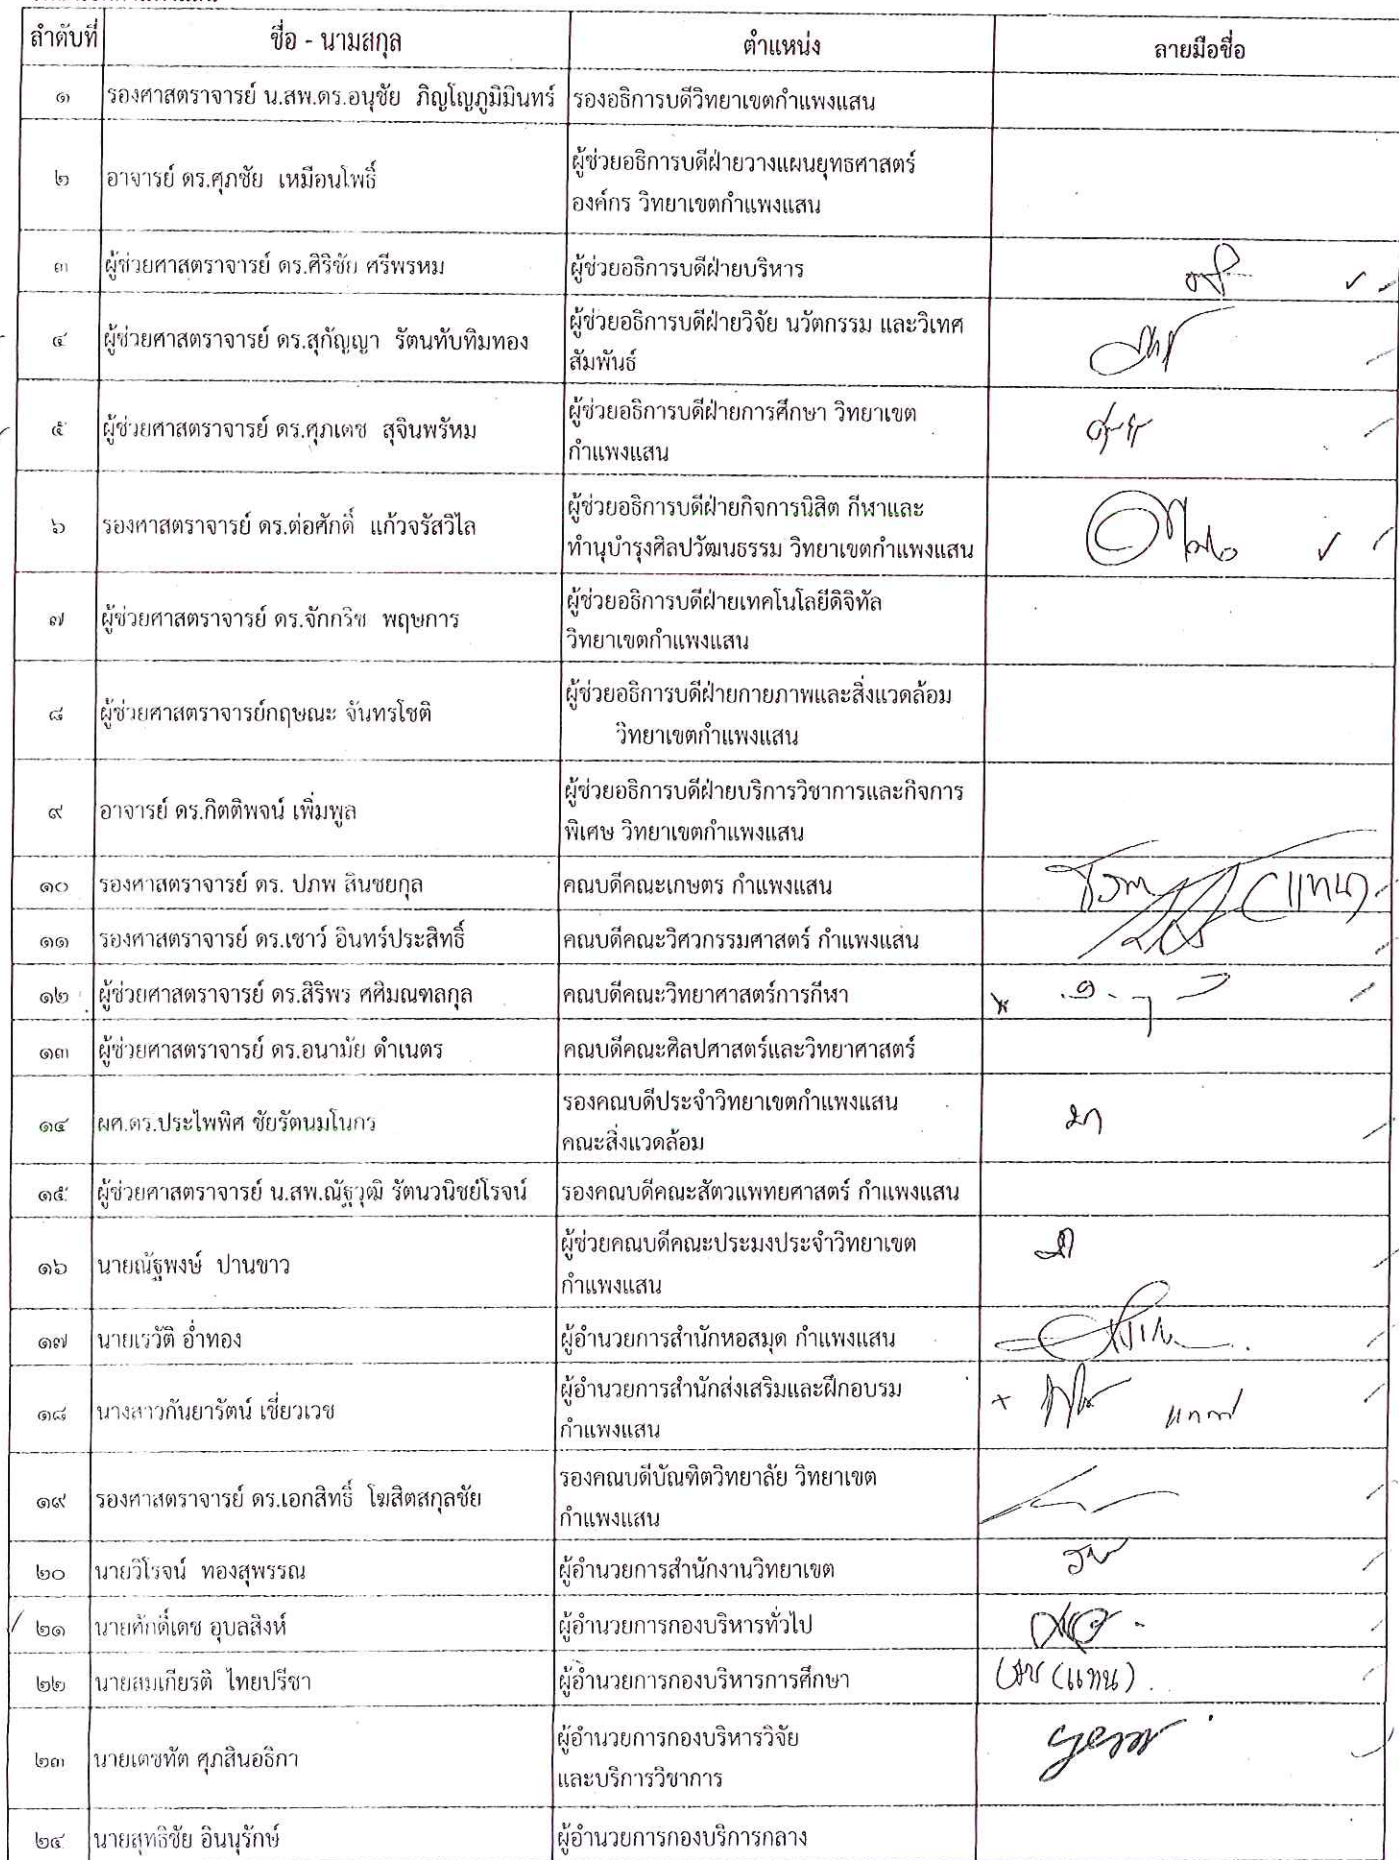 ลำดับที่ ชื่อ - นามสกุล ตำแหน่ง ลายมือชื่อ
๑ รองศาสตราจารย์ น.สพ.ดร.อนุชัย ภิญโญภูมิมินทร์ รองอธิการบดีวิทยาเขตกำแพงแสน
๒ อาจารย์ ดร.ศุภชัย เหมือนโพธิ์ ผู้ช่วยอธิการบดีฝ่ายวางแผนยุทธศาสตร์
องค์กร วิทยาเขตกำแพงแสน
๓ ผู้ช่วยศาสตราจารย์ ดร.ศิริชัย ศรีพรหม ผู้ช่วยอธิการบดีฝ่ายบริหาร
๔ ผู้ช่วยศาสตราจารย์ ดร.สุกัญญา รัตนทับทิมทอง ผู้ช่วยอธิการบดีฝ่ายวิจัย นวัตกรรม และวิเทศ
สัมพันธ์
๕ ผู้ช่วยศาสตราจารย์ ดร.ศุภเดช สุจินพรัหม ผู้ช่วยอธิการบดีฝ่ายการศึกษา วิทยาเขต
กำแพงแสน
๖ รองศาสตราจารย์ ดร.ต่อศักดิ์ แก้วจรัสวิไล ผู้ช่วยอธิการบดีฝ่ายกิจการนิสิต กีฬาและ
ทำนุบำรุงศิลปวัฒนธรรม วิทยาเขตกำแพงแสน
๗ ผู้ช่วยศาสตราจารย์ ดร.จักกริช พฤษการ ผู้ช่วยอธิการบดีฝ่ายเทคโนโลยีดิจิทัล
วิทยาเขตกำแพงแสน
๘ ผู้ช่วยศาสตราจารย์กฤษณะ จันทรโชติ ผู้ช่วยอธิการบดีฝ่ายกายภาพและสิ่งแวดล้อม
วิทยาเขตกำแพงแสน
๙ อาจารย์ ดร.กิตติพจน์ เพิ่มพูล ผู้ช่วยอธิการบดีฝ่ายบริการวิชาการและกิจการ
พิเศษ วิทยาเขตกำแพงแสน
๑๐ รองศาสตราจารย์ ดร. ปภพ สินชยกุล คณบดีคณะเกษตร กำแพงแสน (แทน)
๑๑ รองศาสตราจารย์ ดร.เชาว์ อินทร์ประสิทธิ์ คณบดีคณะวิศวกรรมศาสตร์ กำแพงแสน
๑๒ ผู้ช่วยศาสตราจารย์ ดร.สิริพร ศศิมณฑลกุล คณบดีคณะวิทยาศาสตร์การกีฬา
๑๓ ผู้ช่วยศาสตราจารย์ ดร.อนามัย ดำเนตร คณบดีคณะศิลปศาสตร์และวิทยาศาสตร์
๑๔ ผศ.ดร.ประไพพิศ ชัยรัตนมโนกร รองคณบดีประจำวิทยาเขตกำแพงแสน
คณะสิ่งแวดล้อม
๑๕ ผู้ช่วยศาสตราจารย์ น.สพ.ณัฐวุฒิ รัตนวนิชย์โรจน์ รองคณบดีคณะสัตวแพทยศาสตร์ กำแพงแสน
๑๖ นายณัฐพงษ์ ปานขาว ผู้ช่วยคณบดีคณะประมงประจำวิทยาเขต
กำแพงแสน
๑๗ นายเรวัติ อ่ำทอง ผู้อำนวยการสำนักหอสมุด กำแพงแสน
๑๘ นางสาวกันยารัตน์ เชี่ยวเวช ผู้อำนวยการสำนักส่งเสริมและฝึกอบรม
กำแพงแสน
๑๙ รองศาสตราจารย์ ดร.เอกสิทธิ์ โฆสิตสกุลชัย รองคณบดีบัณฑิตวิทยาลัย วิทยาเขต
กำแพงแสน
๒๐ นายวิโรจน์ ทองสุพรรณ ผู้อำนวยการสำนักงานวิทยาเขต
๒๑ นายศักดิ์เดช อุบลสิงห์ ผู้อำนวยการกองบริหารทั่วไป
๒๒ นายสมเกียรติ ไทยปรีชา ผู้อำนวยการกองบริหารการศึกษา (แทน)
๒๓ นายเดชทัต ศุภสินอธิกา ผู้อำนวยการกองบริหารวิจัย
และบริการวิชาการ
๒๔ นายสุทธิชัย อินนุรักษ์ ผู้อำนวยการกองบริการกลาง